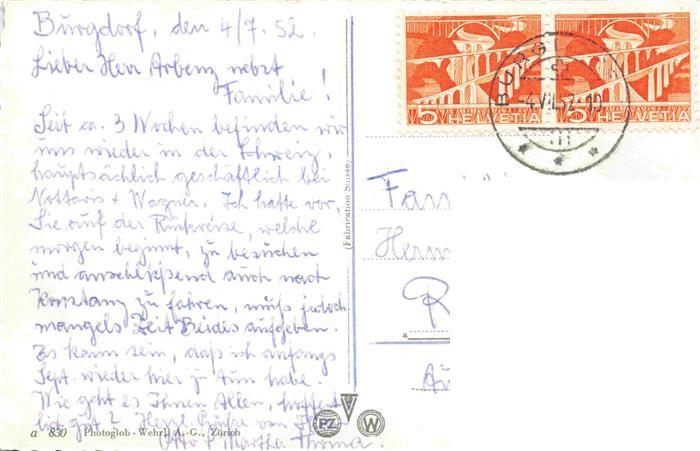 Burgdorf, den 4/7. 52.
Lieber Herr Arbenz nebst
Familie!
Seit ca. 3 Wochen befinden wir
uns wieder in der Schweiz,
hauptsächlich geschäftlich bei
Nottaris + Wagner. Ich hatte vor,
Sie auf der Rückreise, welche
morgen beginnt, zu besuchen
und anschließend auch nach
Konstanz zu fahren, muß jedoch
mangels Zeit Beides aufgeben.
Es kann sein, daß ich anfangs
Sept. wieder hier zu tun habe.
Wie geht es Ihnen Allen, hoffent-
lich gut? Herzl. Grüße von Ihren
Otto & Martha Thoma.
a 830 Photoglob-Wehrli A.-G., Zürich
(Fabrication Suisse)
PZ W
5 HELVETIA 5 HELVETIA
-4.VII.52
Fam
Herm
R
a